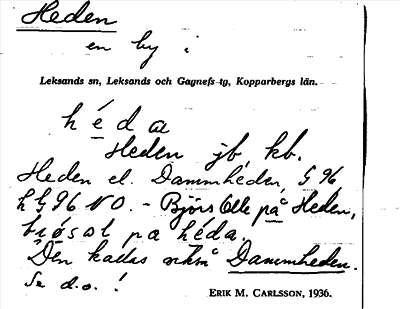 Heden
en by i
Leksands sn, Leksands och Gagnefs tg, Kopparbergs län.
héda
Heden jb, kb.
Heden el. Dammheden, G 96,
h G 96 NO. – Björs Olle på Heden,
på héda.
Den kallas också Dammheden.
Se d.o.!
ERIK M. CARLSSON, 1936.